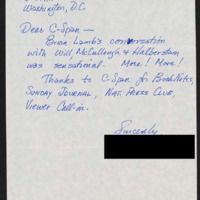 Washington, D.C.
Dear C-Span —
Brian Lamb's conversation
with Will McCullough & Halberstam
was sensational. More! More!
Thanks to C-Span for BookNotes,
SUNDAY JOURNAL, NAT. PRESS CLUB,
Viewer Call-in.
Sincerely